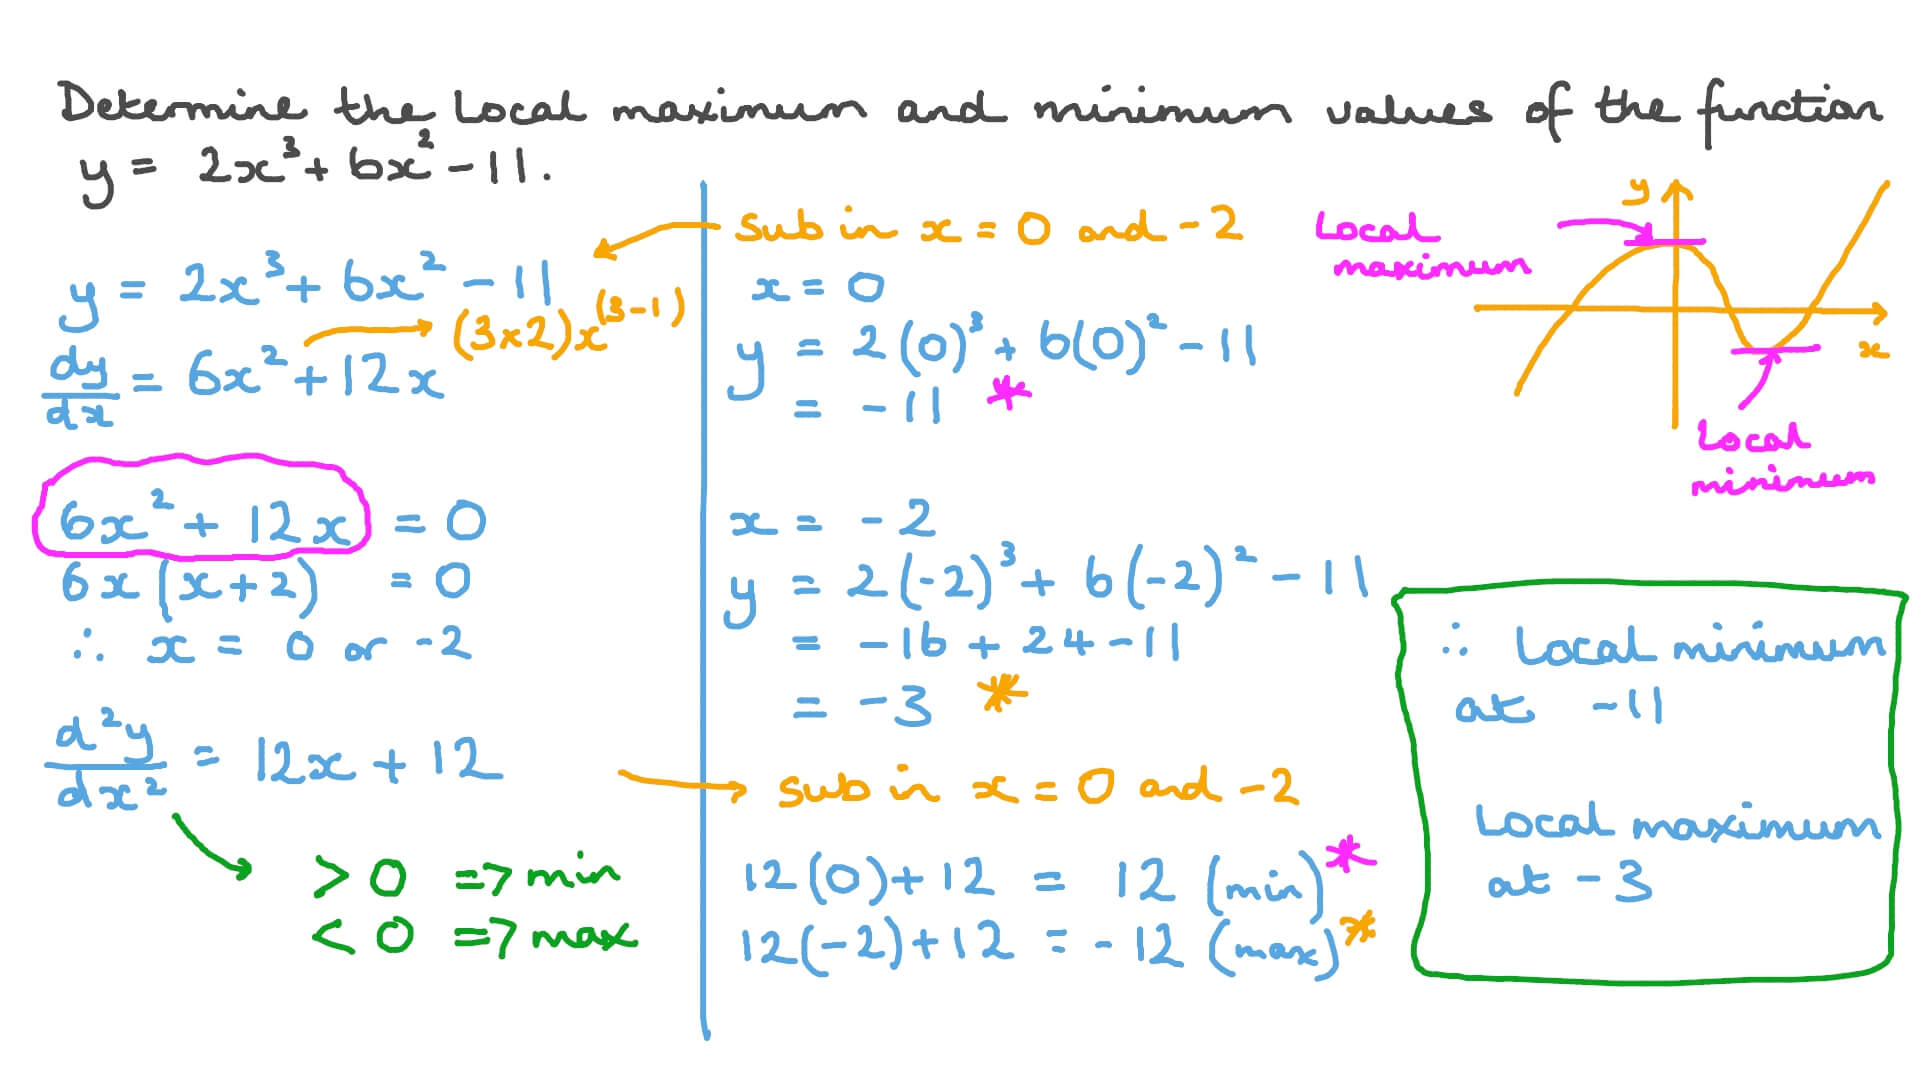 Determine the local maximum and minimum values of the function
y = 2x³ + 6x² - 11.
y = 2x³ + 6x² - 11
(3x2)x⁽³⁻¹⁾
dy/dx = 6x² + 12x
6x² + 12x = 0
6x(x+2) = 0
∴ x = 0 or -2
d²y/dx² = 12x + 12
> 0 => min
< 0 => max
sub in x = 0 and -2
x = 0
y = 2(0)³ + 6(0)² - 11
= -11 *
x = -2
y = 2(-2)³ + 6(-2)² - 11
= -16 + 24 - 11
= -3 *
sub in x = 0 and -2
12(0) + 12 = 12 (min) *
12(-2) + 12 = -12 (max) *
y
Local
maximum
x
Local
minimum
∴ Local minimum
at -11
Local maximum
at -3